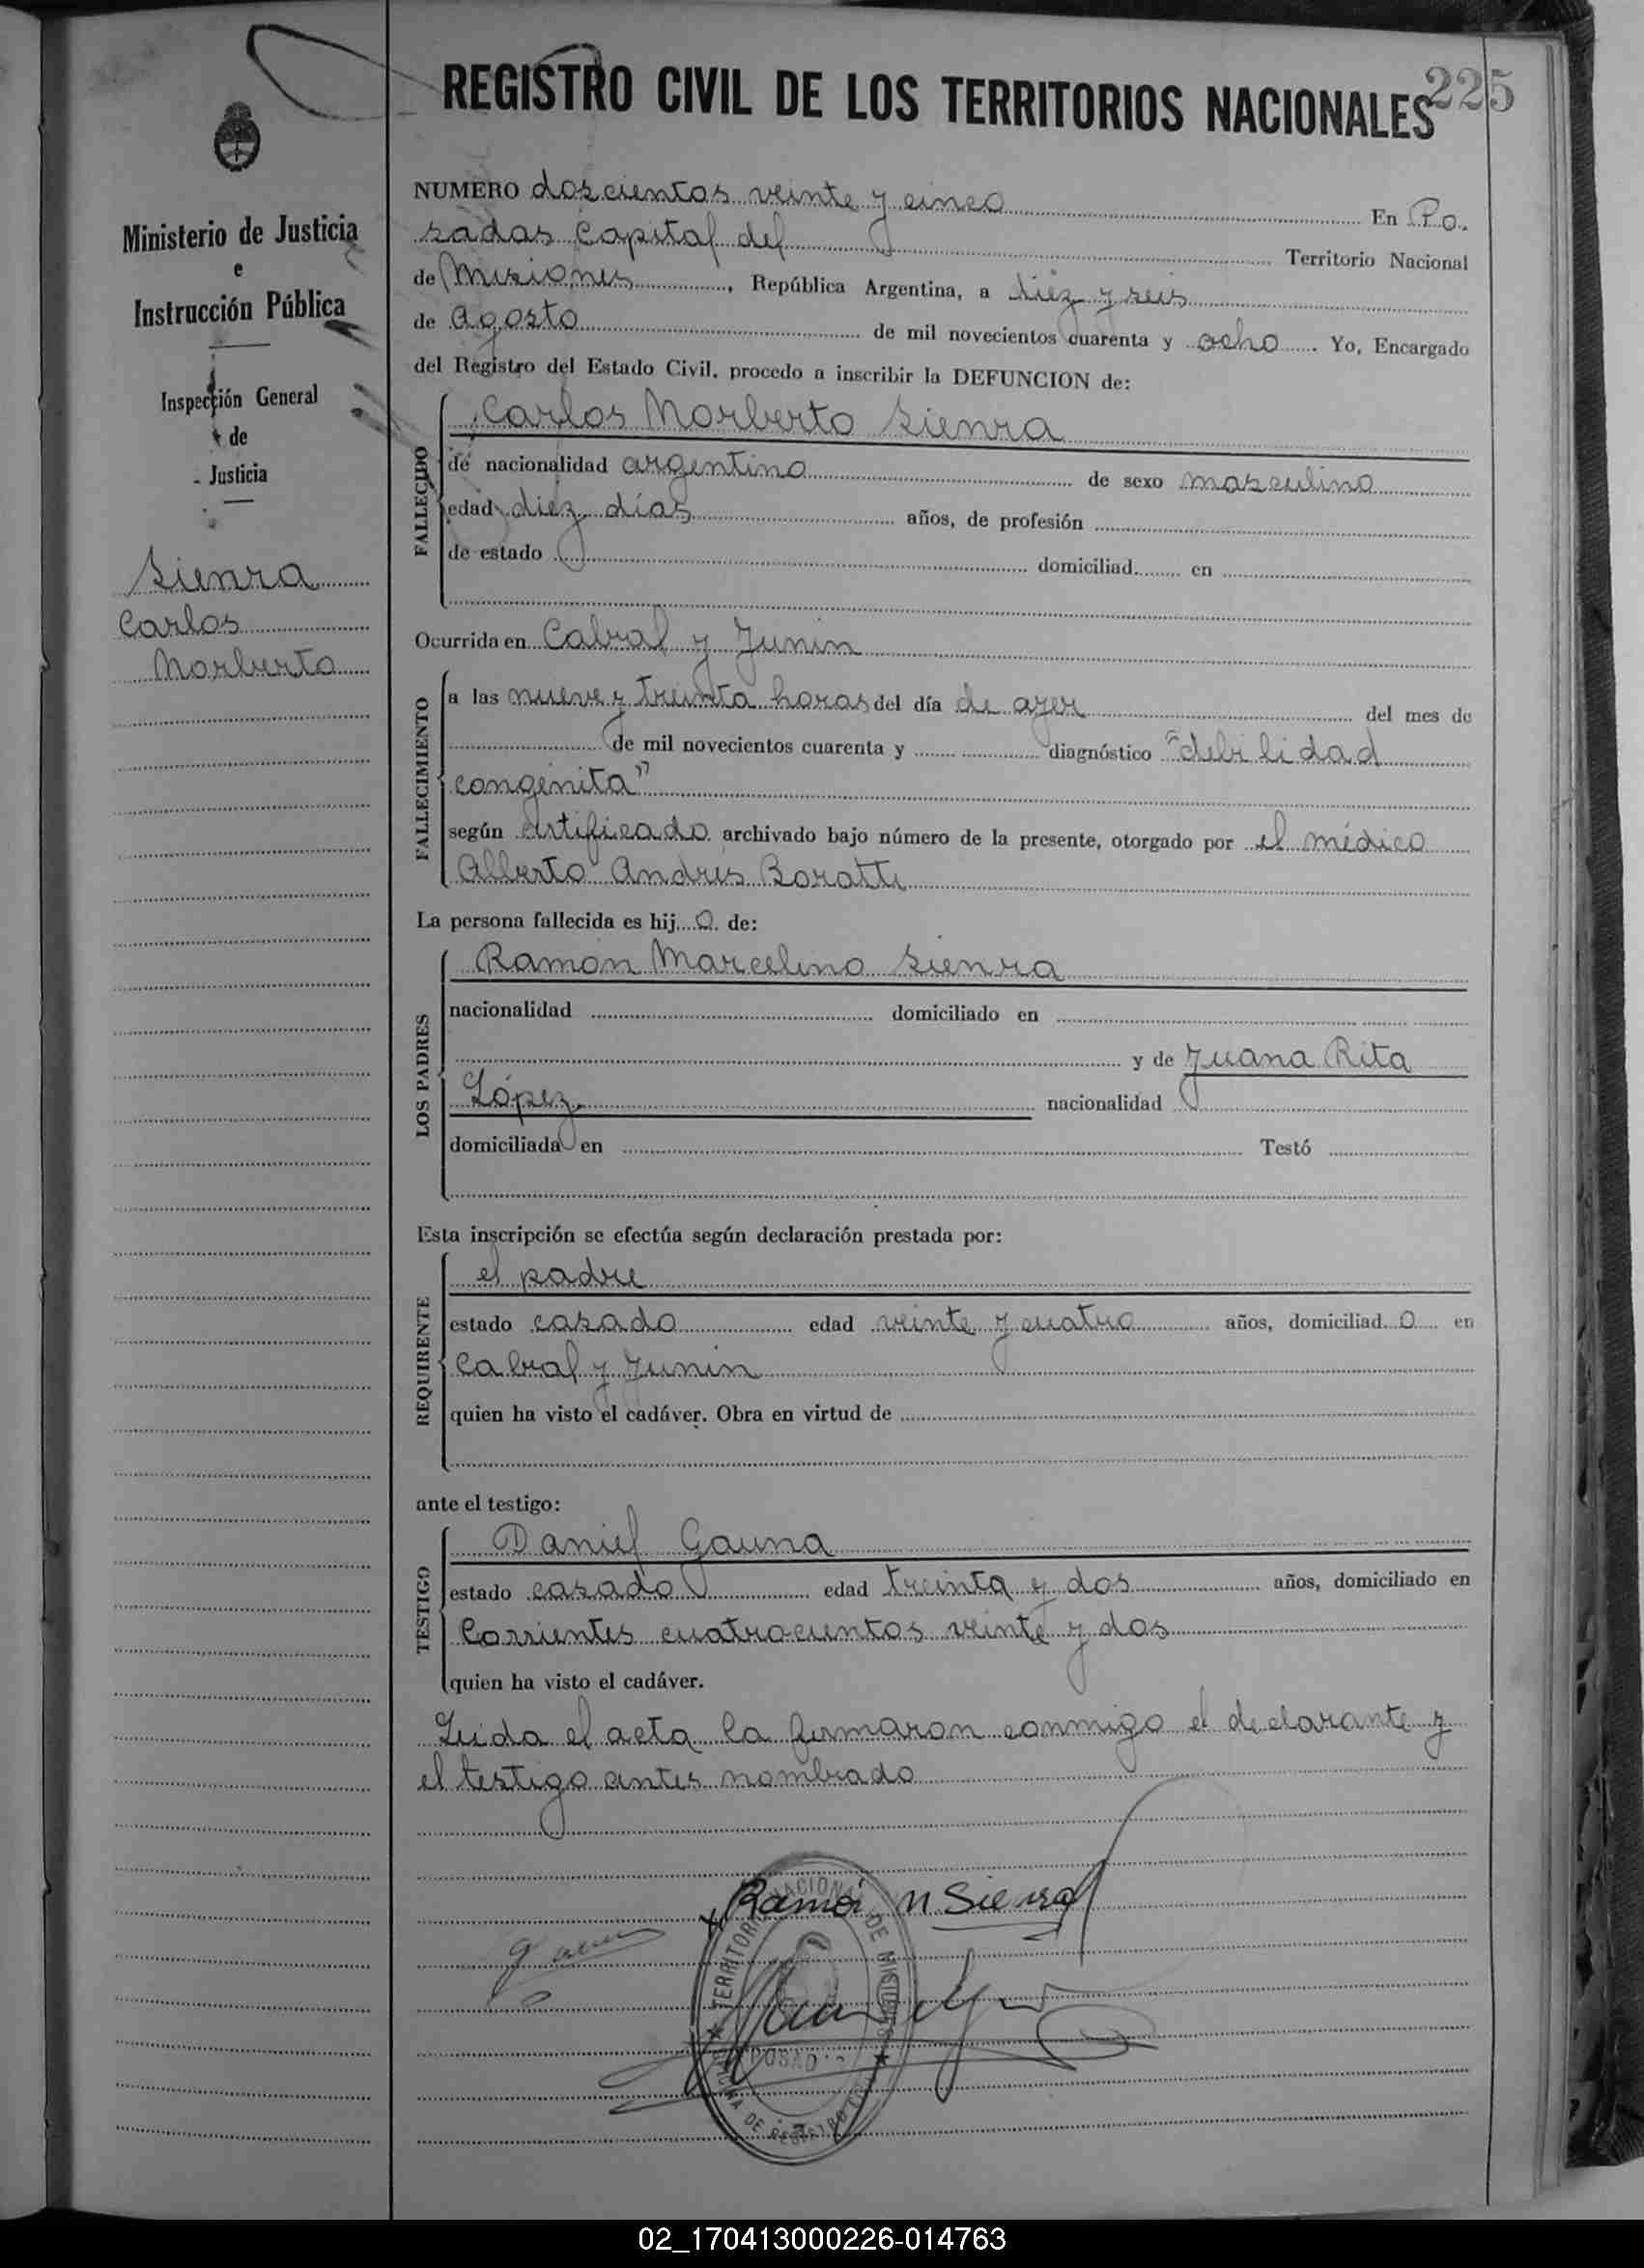 225
REGISTRO CIVIL DE LOS TERRITORIOS NACIONALES
Ministerio de Justicia
e
Instrucción Pública
Inspección General
de
Justicia
Sienra
Carlos
Norberto
NUMERO doscientos veinte y cinco En Po.
sadas Capital del Territorio Nacional
de Misiones, República Argentina, a diez y seis
de Agosto de mil novecientos cuarenta y ocho. Yo, Encargado
del Registro del Estado Civil, procedo a inscribir la DEFUNCION de:
FALLECIDO
Carlos Norberto Sienra
de nacionalidad argentino de sexo masculino
edad diez días años, de profesión
de estado domiciliad en
Ocurrida en Cabral y Junin
FALLECIMIENTO
a las nueve y treinta horas del día de ayer del mes de
de mil novecientos cuarenta y diagnóstico "debilidad
congénita"
según certificado archivado bajo número de la presente, otorgado por el médico
Alberto Andrés Boratti
La persona fallecida es hijo de:
LOS PADRES
Ramón Marcelino Sienra
nacionalidad domiciliado en
y de Juana Rita
López nacionalidad
domiciliada en Testó
Esta inscripción se efectúa según declaración prestada por:
REQUIRENTE
el padre
estado casado edad veinte y cuatro años, domiciliado en
Cabral y Junin
quien ha visto el cadáver. Obra en virtud de
ante el testigo:
TESTIGO
Daniel Gauna
estado casado edad treinta y dos años, domiciliado en
Corrientes cuatrocientos veinte y dos
quien ha visto el cadáver.
Leida el acta la firmaron conmigo el declarante y
el testigo antes nombrado
Ramón M Sienra
TERRITORIO NACIONAL DE MISIONES
POSADAS
OFICINA DE REGISTRO CIVIL
02_170413000226-014763